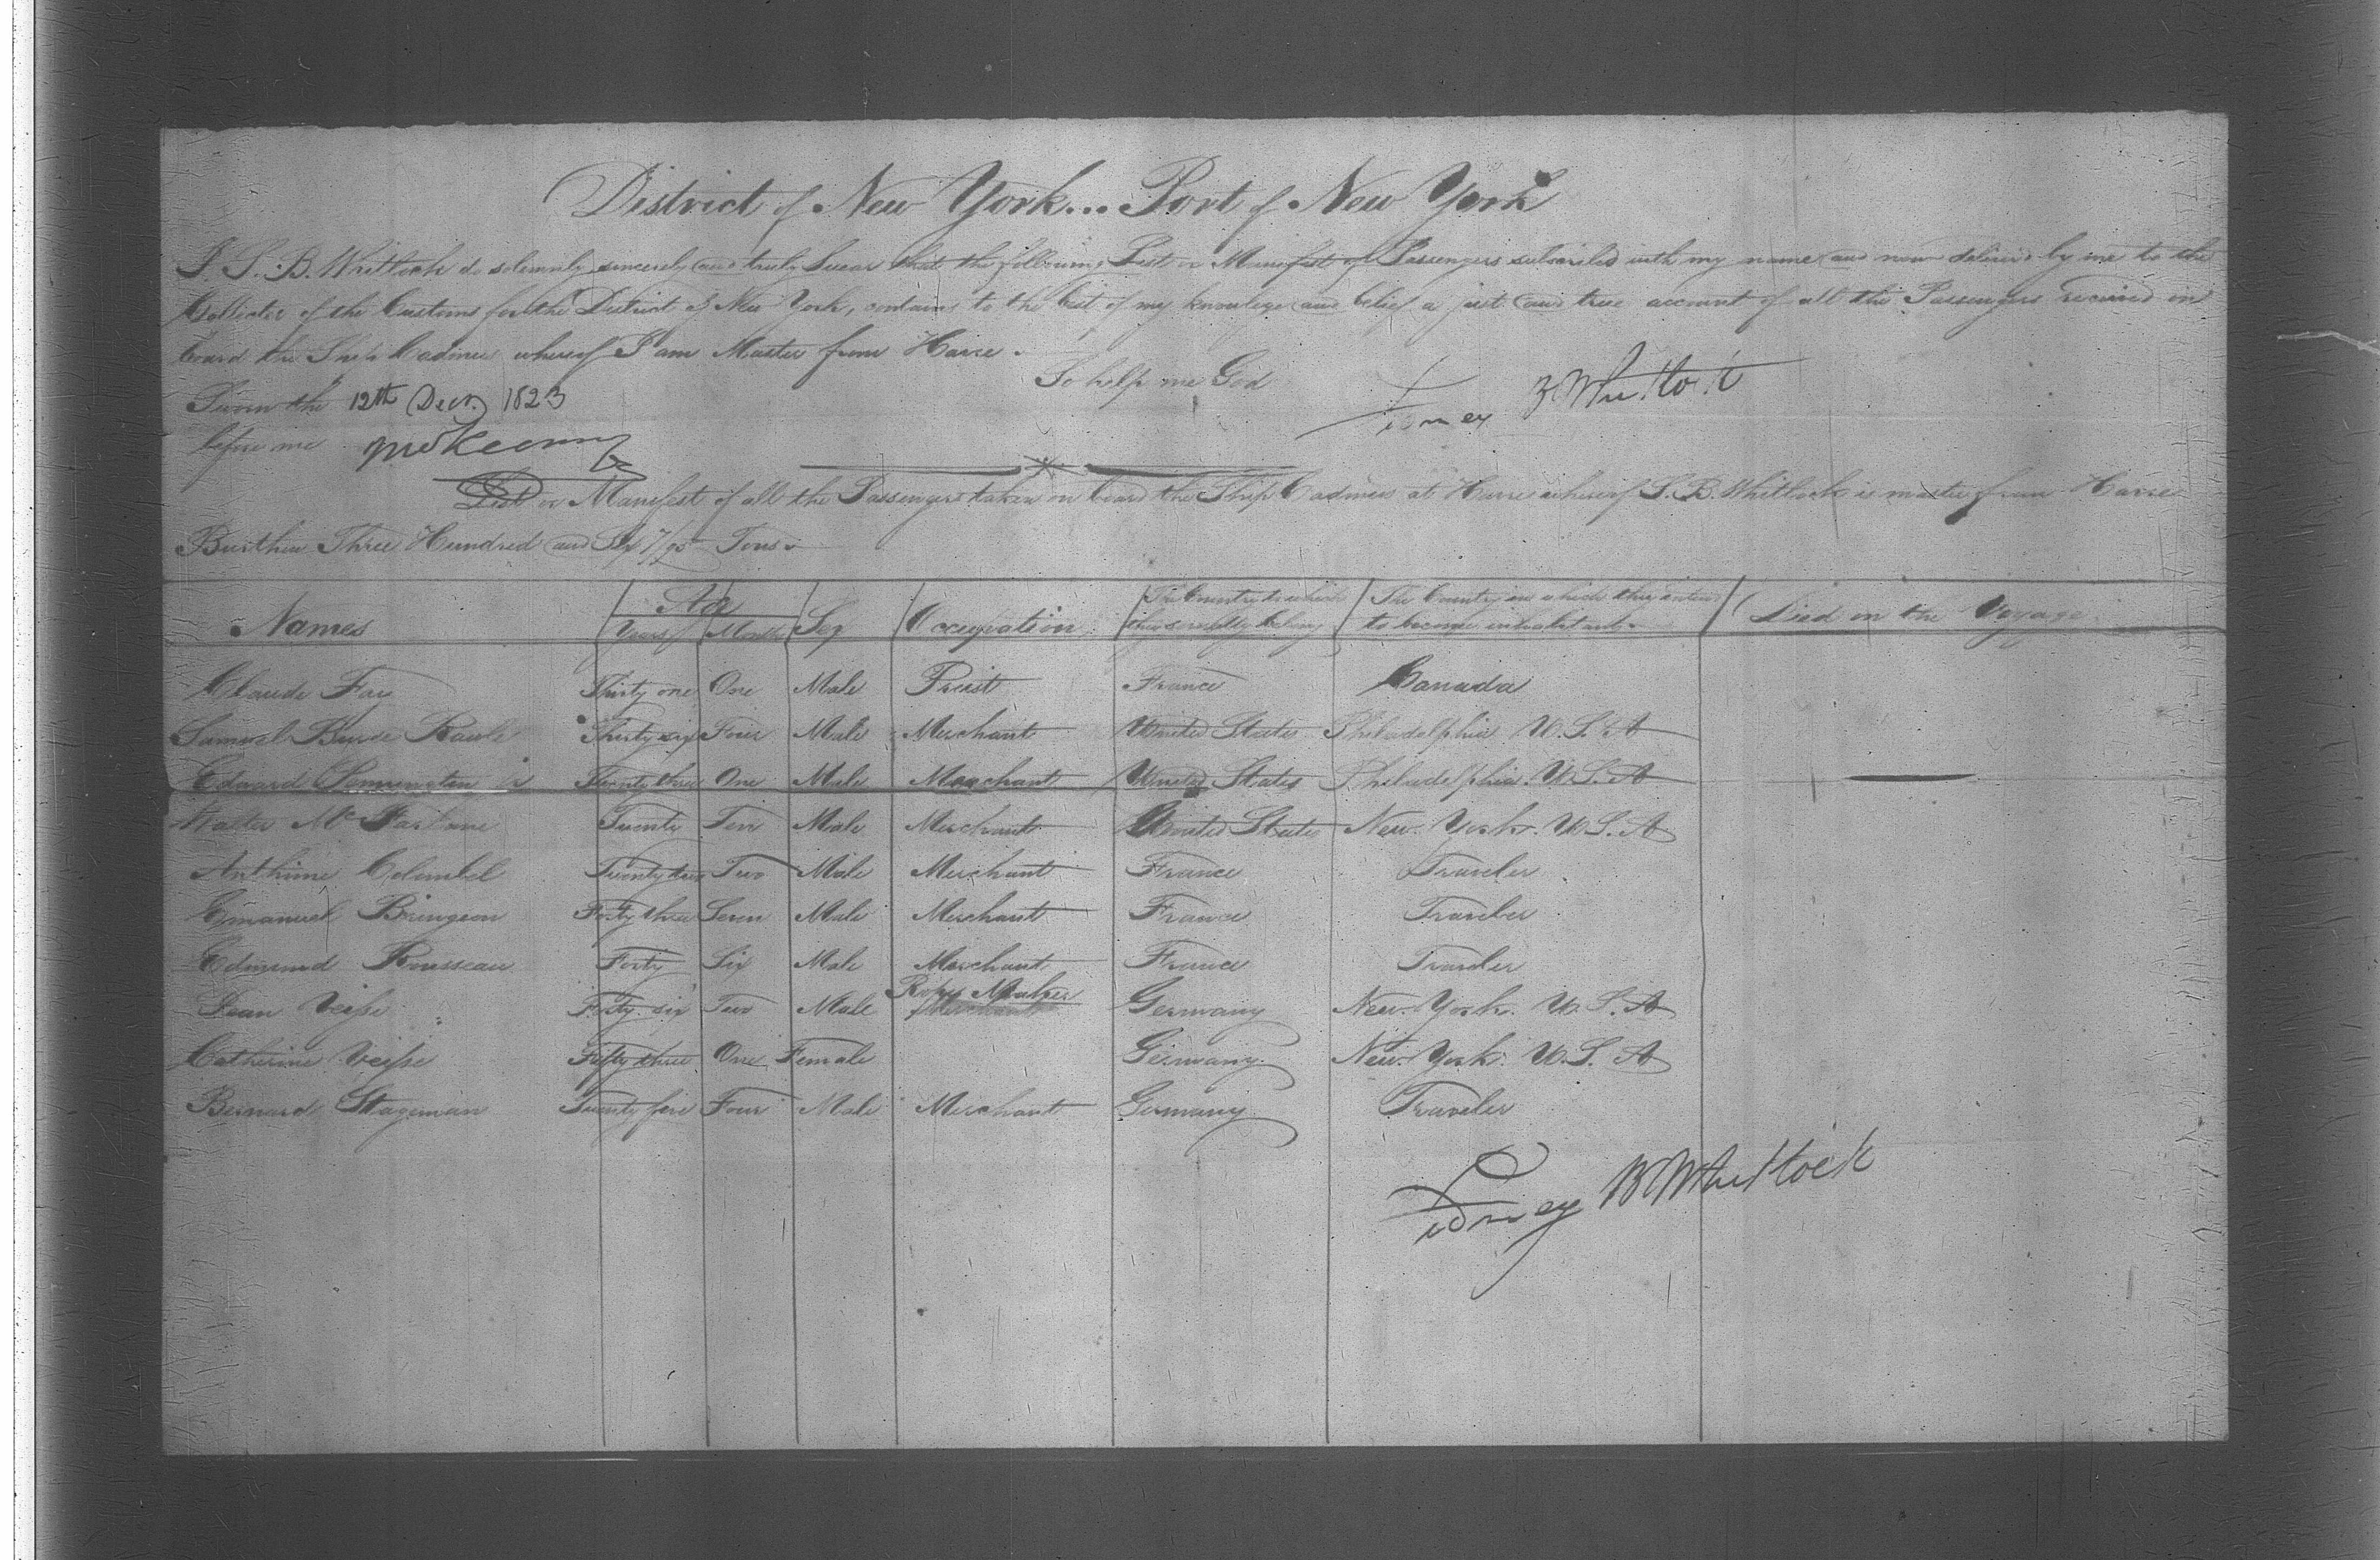 District of New York... Port of New York
I S. B. Whitlock do solemnly sincerely and truly Swear that the following List or Manifest of Passengers subscribed with my name and now deliverd by me to the
Collector of the Customs for the District of New York, contains to the best of my knowlege and belief a just and true account of all the Passengers received on
board the Ship Cadmus whereof I am Master from Havre.
So help me God
Sworn the 12th Decr. 1823
Sidney B Whitlock
before me
List or Manifest of all the Passengers taken on board the Ship Cadmus at Havre whereof S. B. Whitlock is master from Havre
Burthen Three Hundred and Six 7/95 Tons
Names Age Years Months Sex Occupation The Country to which they severally belong The Country in which they intend to become inhabitants Died on the Voyage
Claude Fay Thirty one One Male Preist France Canada
Samuel Burde Rawle Thirty six Four Male Merchant United States Philadelphia U.S.A
Edward Pennington Jr Twenty three One Male Merchant United States Philadelphia. U.S.A
Walter Mc Farlane Twenty Ten Male Merchant United States New York. U.S.A
Anthime Colombel Twenty two Two Male Merchant France Traveler
Emanuel Forty three Seven Male Merchant France Traveler
Edmund Rousseau Forty Six Male Merchant France Traveler
Jean Veisse Forty six Two Male Rope Maker Germany New York. U.S.A
Catherine Veisse Fifty three One Female Germany New York. U.S.A
Bernard Stageman Twenty five Four Male Merchant Germany Traveler
Sidney B Whitlock